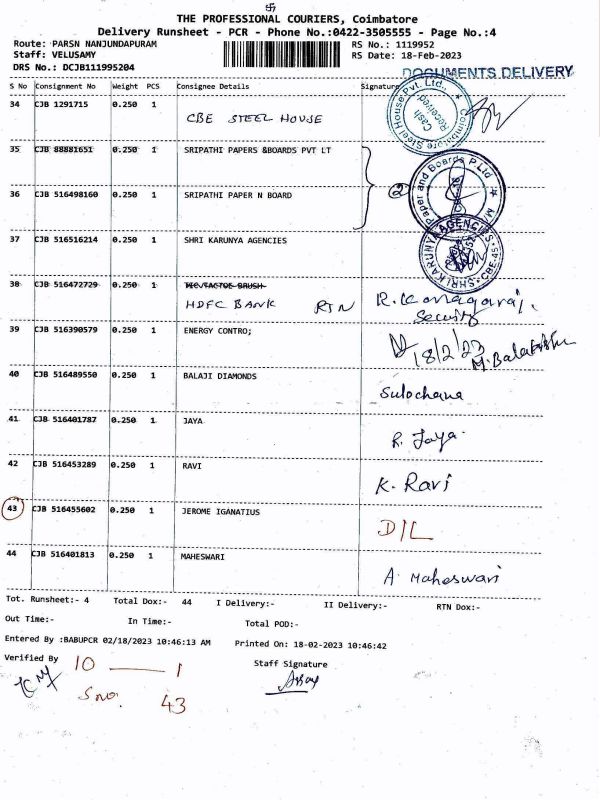 卐
THE PROFESSIONAL COURIERS, Coimbatore
Delivery Runsheet - PCR - Phone No.:0422-3505555 - Page No.:4
Route: PARSN NANJUNDAPURAM RS No.: 1119952
Staff: VELUSAMY RS Date: 18-Feb-2023
DRS No.: DCJB111995204
DOCUMENTS DELIVERY
S No Consignment No Weight PCS Consignee Details Signature
34 CJB 1291715 0.250 1
CBE STEEL HOUSE
Coimbatore Steel House Pvt. Ltd.,
Cash
Received
35 CJB 88881651 0.250 1 SRIPATHI PAPERS &BOARDS PVT LT
2
Paper and Boards P.Ltd
36 CJB 516498160 0.250 1 SRIPATHI PAPER N BOARD
37 CJB 516516214 0.250 1 SHRI KARUNYA AGENCIES
SHRI KARUNYA AGENCIES CBE-45
38 CJB 516472729 0.250 1
HDFC BANK RTN R. Kanagaraj.
Security
39 CJB 516390579 0.250 1 ENERGY CONTRO;
18/2/23
40 CJB 516489550 0.250 1 BALAJI DIAMONDS
Sulochana
41 CJB 516401787 0.250 1 JAYA
R. Jaya
42 CJB 516453289 0.250 1 RAVI
K. Ravi
43 CJB 516455602 0.250 1 JEROME IGANATIUS
D/L
44 CJB 516401813 0.250 1 MAHESWARI
A Maheswari
Tot. Runsheet:- 4 Total Dox:- 44 I Delivery:- II Delivery:- RTN Dox:-
Out Time:- In Time:- Total POD:-
Entered By :BABUPCR 02/18/2023 10:46:13 AM Printed On: 18-02-2023 10:46:42
Verified By 10 — 1 Staff Signature
S no. 43